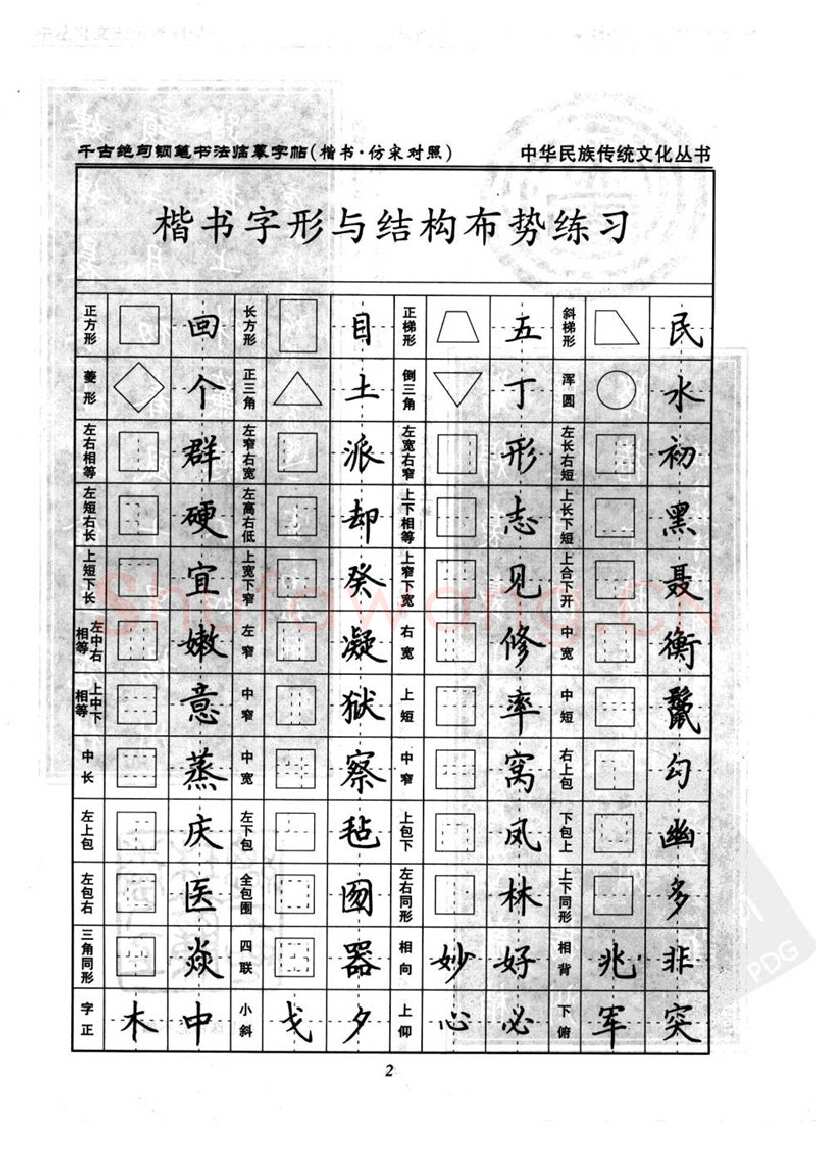 千古绝句钢笔书法临摹字帖(楷书·仿宋对照) 中华民族传统文化丛书
楷书字形与结构布势练习
正方形 回 长方形 目 正梯形 五 斜梯形 民
菱形 个 正三角 土 倒三角 丁 浑圆 水
左右相等 群 左窄右宽 派 左宽右窄 形 左长右短 初
左短右长 硬 左高右低 却 上下相等 志 上长下短 黑
上短下长 宜 上宽下窄 癸 上窄下宽 见 上合下开 聂
左中右相等 嫩 左窄 凝 右宽 修 中宽 衡
上中下相等 意 中窄 狱 上短 率 中短
中长 蒸 中宽 察 中窄 窝 右上包 勾
左上包 庆 左下包 毡 上包下 凤 下包上 幽
左包右 医 全包围 图 左右同形 林 上下同形 多
三角同形 焱 四联 器 相向 妙 好 相背 兆 非
字正 木 中 小斜 戈 夕 上仰 心 必 下俯 军 突
Shufawang.CN
PDG
2